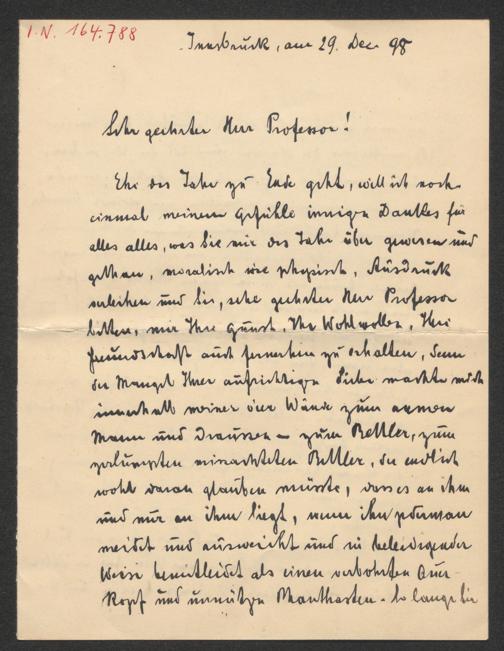 I.N. 164.788
Innsbruck, am 29. Dec. 98
Sehr geehrter Herr Professor!
Ehe das Jahr zu Ende geht, will ich noch
einmal meinem Gefühle innigen Dankes für
alles alles, was Sie mir das Jahr über gewesen und
gethan, moralisch wie physisch, Ausdruck
verleihen und Sie, sehr geehrter Herr Professor
bitten, mir Ihre Gunst, Ihr Wohlwollen, Ihre
Freundschaft auch fernerhin zu erhalten, denn
der Mangel Ihrer aufrichtigen Liebe machte mich
innerhalb meiner vier Wände zum armen
Mann und draussen – zum Bettler, zum
zerlumpten missachteten Bettler, der endlich
wohl daran glauben müsste, dass es an ihm
und nur an ihm liegt, wenn ihn jederman
meidet und ausweicht und in beleidigender
Weise bemitleidet als einen verbohrten Quer-
kopf und unnützen Phantasten. So lange Sie